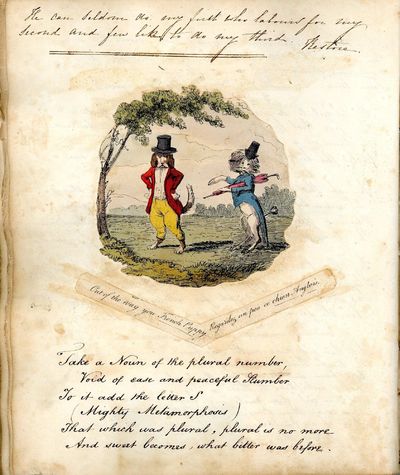 He can seldom do my first who labours for my
second and few like to do my third. Restore
Out of the way you French Puppy
Regardez un peu ce chien Anglois.
Take a Noun of the plural number,
Void of ease and peaceful Slumber
To it add the letter S
(Mighty Metamorphosis)
That which was plural, plural is no more
And sweet becomes, what bitter was before.